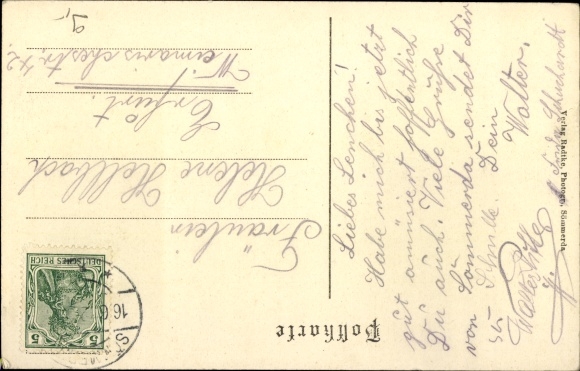 Postkarte
Liebes Lenchen!
Habe mich bis jetzt
gut amüsiert hoffentlich
Du auch. Viele Grüße
von Sömmerda sendet Dir
Dein
Walter.
Fräulein
Helene Hellbach
Erfurt.
Weimarischestr. 42.
Verlag Radtke, Photogr., Sömmerda.
DEUTSCHES REICH
5 5
16.6
9,-